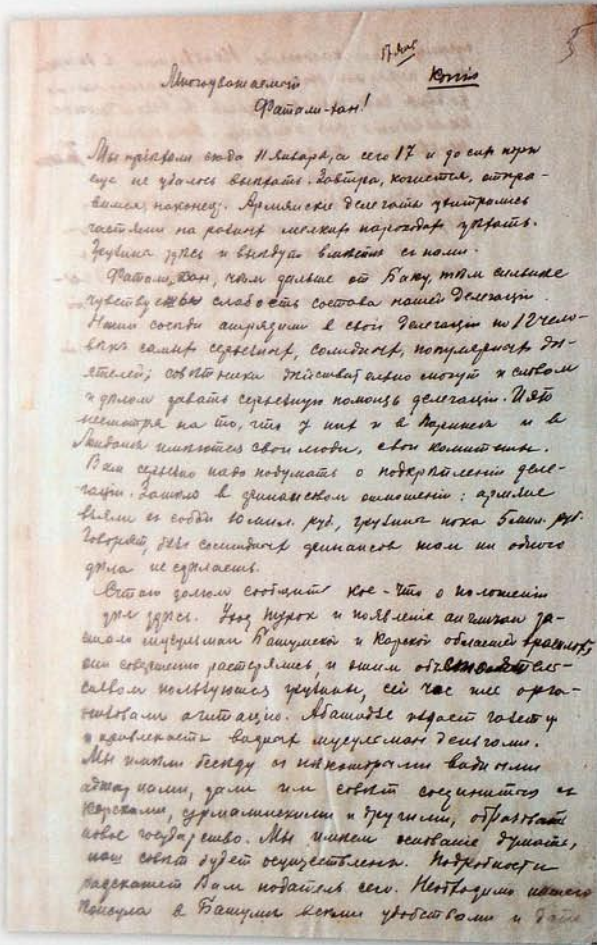 5
17 янв
Копія
Многоуважаемый
Фатали-хан!
Мы пріехали сюда 11 января, а сего 17 и до сих пор
еще не удалось выехать. Завтра, кажется, отпра-
вимся, наконец. Армянские делегаты ухитрились
частями на разных мелких пароходах уехать.
Грузины здесь и выедут вместе с нами.
Фатали-хан, чем дальше от Баку, тем сильнее
чувствуем слабость состава нашей делегаціи.
Наши соседи снарядили в свои делегаціи по 12 чело-
векъ самых серьезных, солидных, популярных де-
ятелей; советники действительно смогут и словом
и делом давать серьезную помощь делегаціи. И это
несмотря на то, что у них и в Париже и в
Лондоне имеются свои люди, свои комитеты.
Вам серьезно надо подумать о подкреплении деле-
гаціи. Также в финансовом отношеніи: армяне
взяли съ собой 10 мил. руб., грузины пока 5 мил. руб.
Говорят, без солидных финансов там ни одного
дела не сделаешь.
Считаю долгом сообщить кое-что о положеніи
дел здесь. Уход турок и появленіе англичан за-
стало мусульман Батумской и Карской областей врасплох,
они совершенно растерялись, и этим обстоятель-
ством пользуются грузины, сей час же орга-
низовали агитацію. Абашидзе издает газету
и привлекает видных мусульман деньгами.
Мы имели беседу съ некоторыми видными
аджарцами, дали им совет соединиться съ
Карсками, сурмалинскими и другими, образовать
новое государство. Мы имеем основаніе думать,
наш совет будет осуществленъ. Подробности
расскажет Вам податель сего. Необходимо нашего
Консула в Батуме всеми удобствами и дать